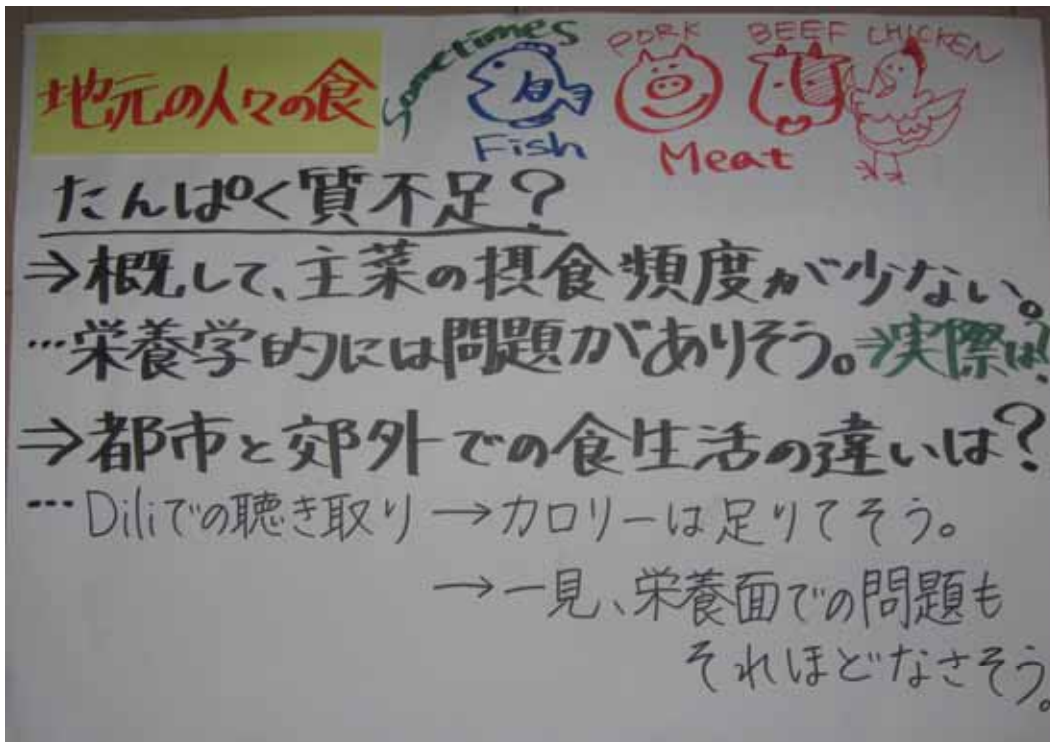 地元の人々の食
sometimes
Fish
PORK BEEF CHICKEN
Meat
たんぱく質不足?
⇒概して、主菜の摂食頻度が少ない。
…栄養学的には問題がありそう。⇒実際は?
⇒都市と郊外での食生活の違いは?
…Diliでの聴き取り→カロリーは足りてそう。
→一見、栄養面での問題も
それほどなさそう。